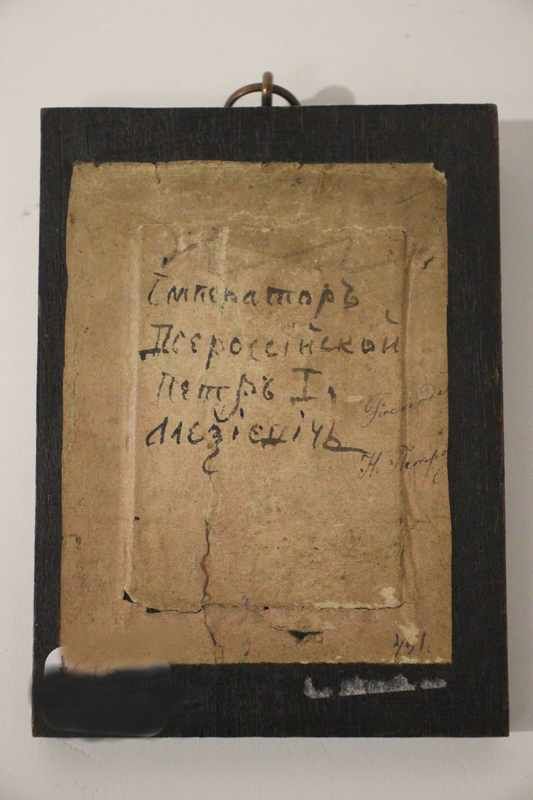 Імператоръ
Всероссійской
Петръ I,
Алеѯіевічь